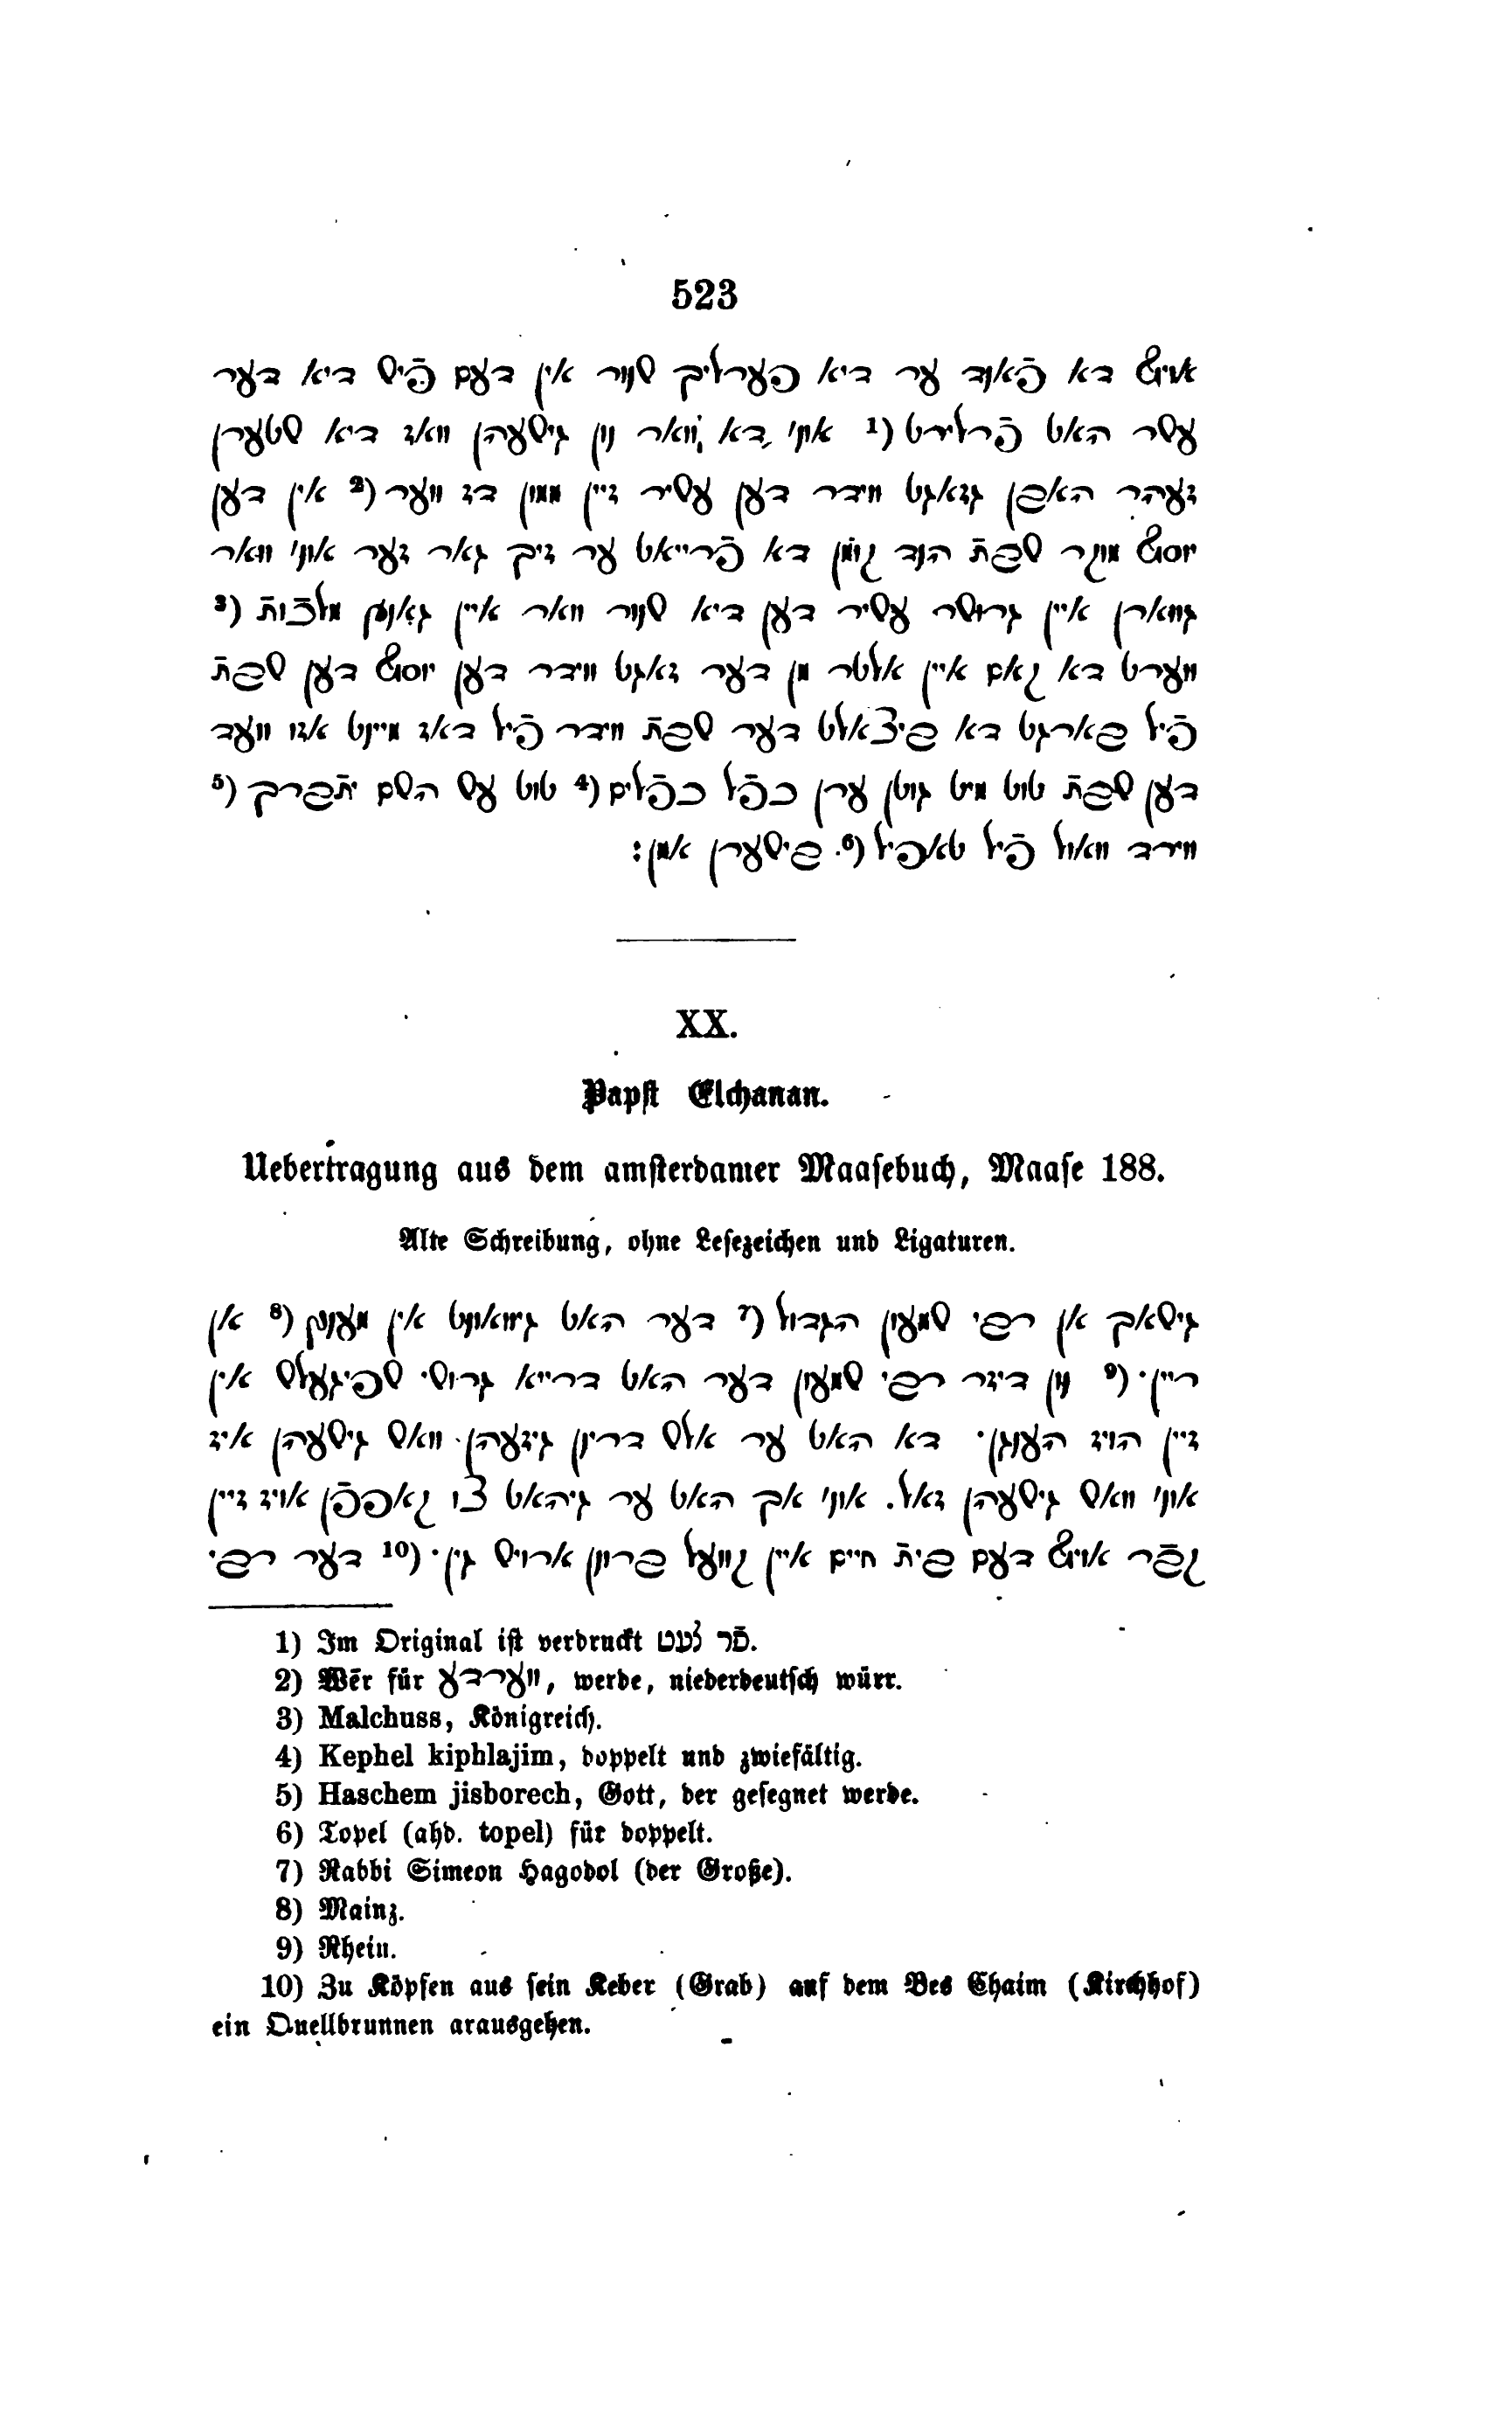 523
אויף דא פֿאנד ער דיא פערליך שנור אין דעם פֿיש דיא דער
עשר האט פֿרלירט (1 אונ' דא וואר נון גישעהן וואז דיא שטערן
זעהר האבן גזאגט ווידר דען עשיר זיין ממון דז ווער (2 אין דען
יוסף מוקר שבתֿ הנד קומן דא פֿרייאט ער זיך גאר זער אונ' וואר
גווארן איין גרושר עשיר דען דיא שנור וואר איין גאנץ מלכֿותֿ (3
ווערט דא קאם איין אלטר מן דער זאגט ווידר דען יוסף דען שבתֿ
פֿיל בארגט דא ביצאלט דער שבתֿ ווידר פֿיל דאז מיינט אזו וועד
דען שבתֿ טוט מיט גוטן ערן כפֿל כפֿלים (4 טוט עש השם יתֿברך (5
ווירד וואול פֿיל טאפיל (6. בישערן אמן:
XX.
Papst Elchanan.
Uebertragung aus dem amsterdamer Maasebuch, Maase 188.
Alte Schreibung, ohne Lesezeichen und Ligaturen.
גישאך אן רבי שמעון הגדול (7 דער האט גוואונט אין מענץ (8 אן
ריין· (9 נון דיזר רבי שמעון דער האט דרייא גרוש' שפיגעלש אין
זיין הויז הענגן· דא האט ער אלש דרינן גיזעהן וואש גישעהן איז
אונ' וואש גישעהן זאל. אונ' אך האט ער גיהאט צו קאפפֿן אויז זיין
קבֿר אויף דעם ביתֿ חיים איין קוועל ברונן ארויש גין· (10 דער רבי
1) Im Original ist verdruckt פֿר לעט.
2) Wēr für ווערדע, werde, niederdeutsch würr.
3) Malchuss, Königreich.
4) Kephel kiphlajim, doppelt und zwiefältig.
5) Haschem jisborech, Gott, der gesegnet werde.
6) Topel (ahd. topel) für doppelt.
7) Rabbi Simeon Hagodol (der Große).
8) Mainz.
9) Rhein.
10) Zu Köpfen aus sein Keber (Grab) auf dem Bes Chaim (Kirchhof)
ein Quellbrunnen arausgehen.